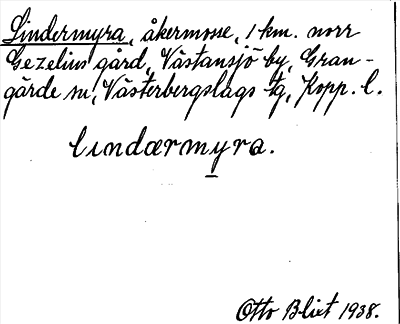 Lindermyra, åkermosse, 1 km. norr
Gezelius gård, Västansjö by, Gran-
gärde sn, Västerbergslags tg, Kopp. l.
lindærmyra.
Otto Blixt 1938.